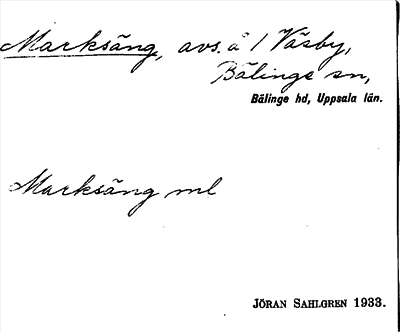 Marksäng, avs. å 1 Väsby,
Bälinge sn,
Bälinge hd, Uppsala län.
Marksäng ml
JÖRAN SAHLGREN 1933.